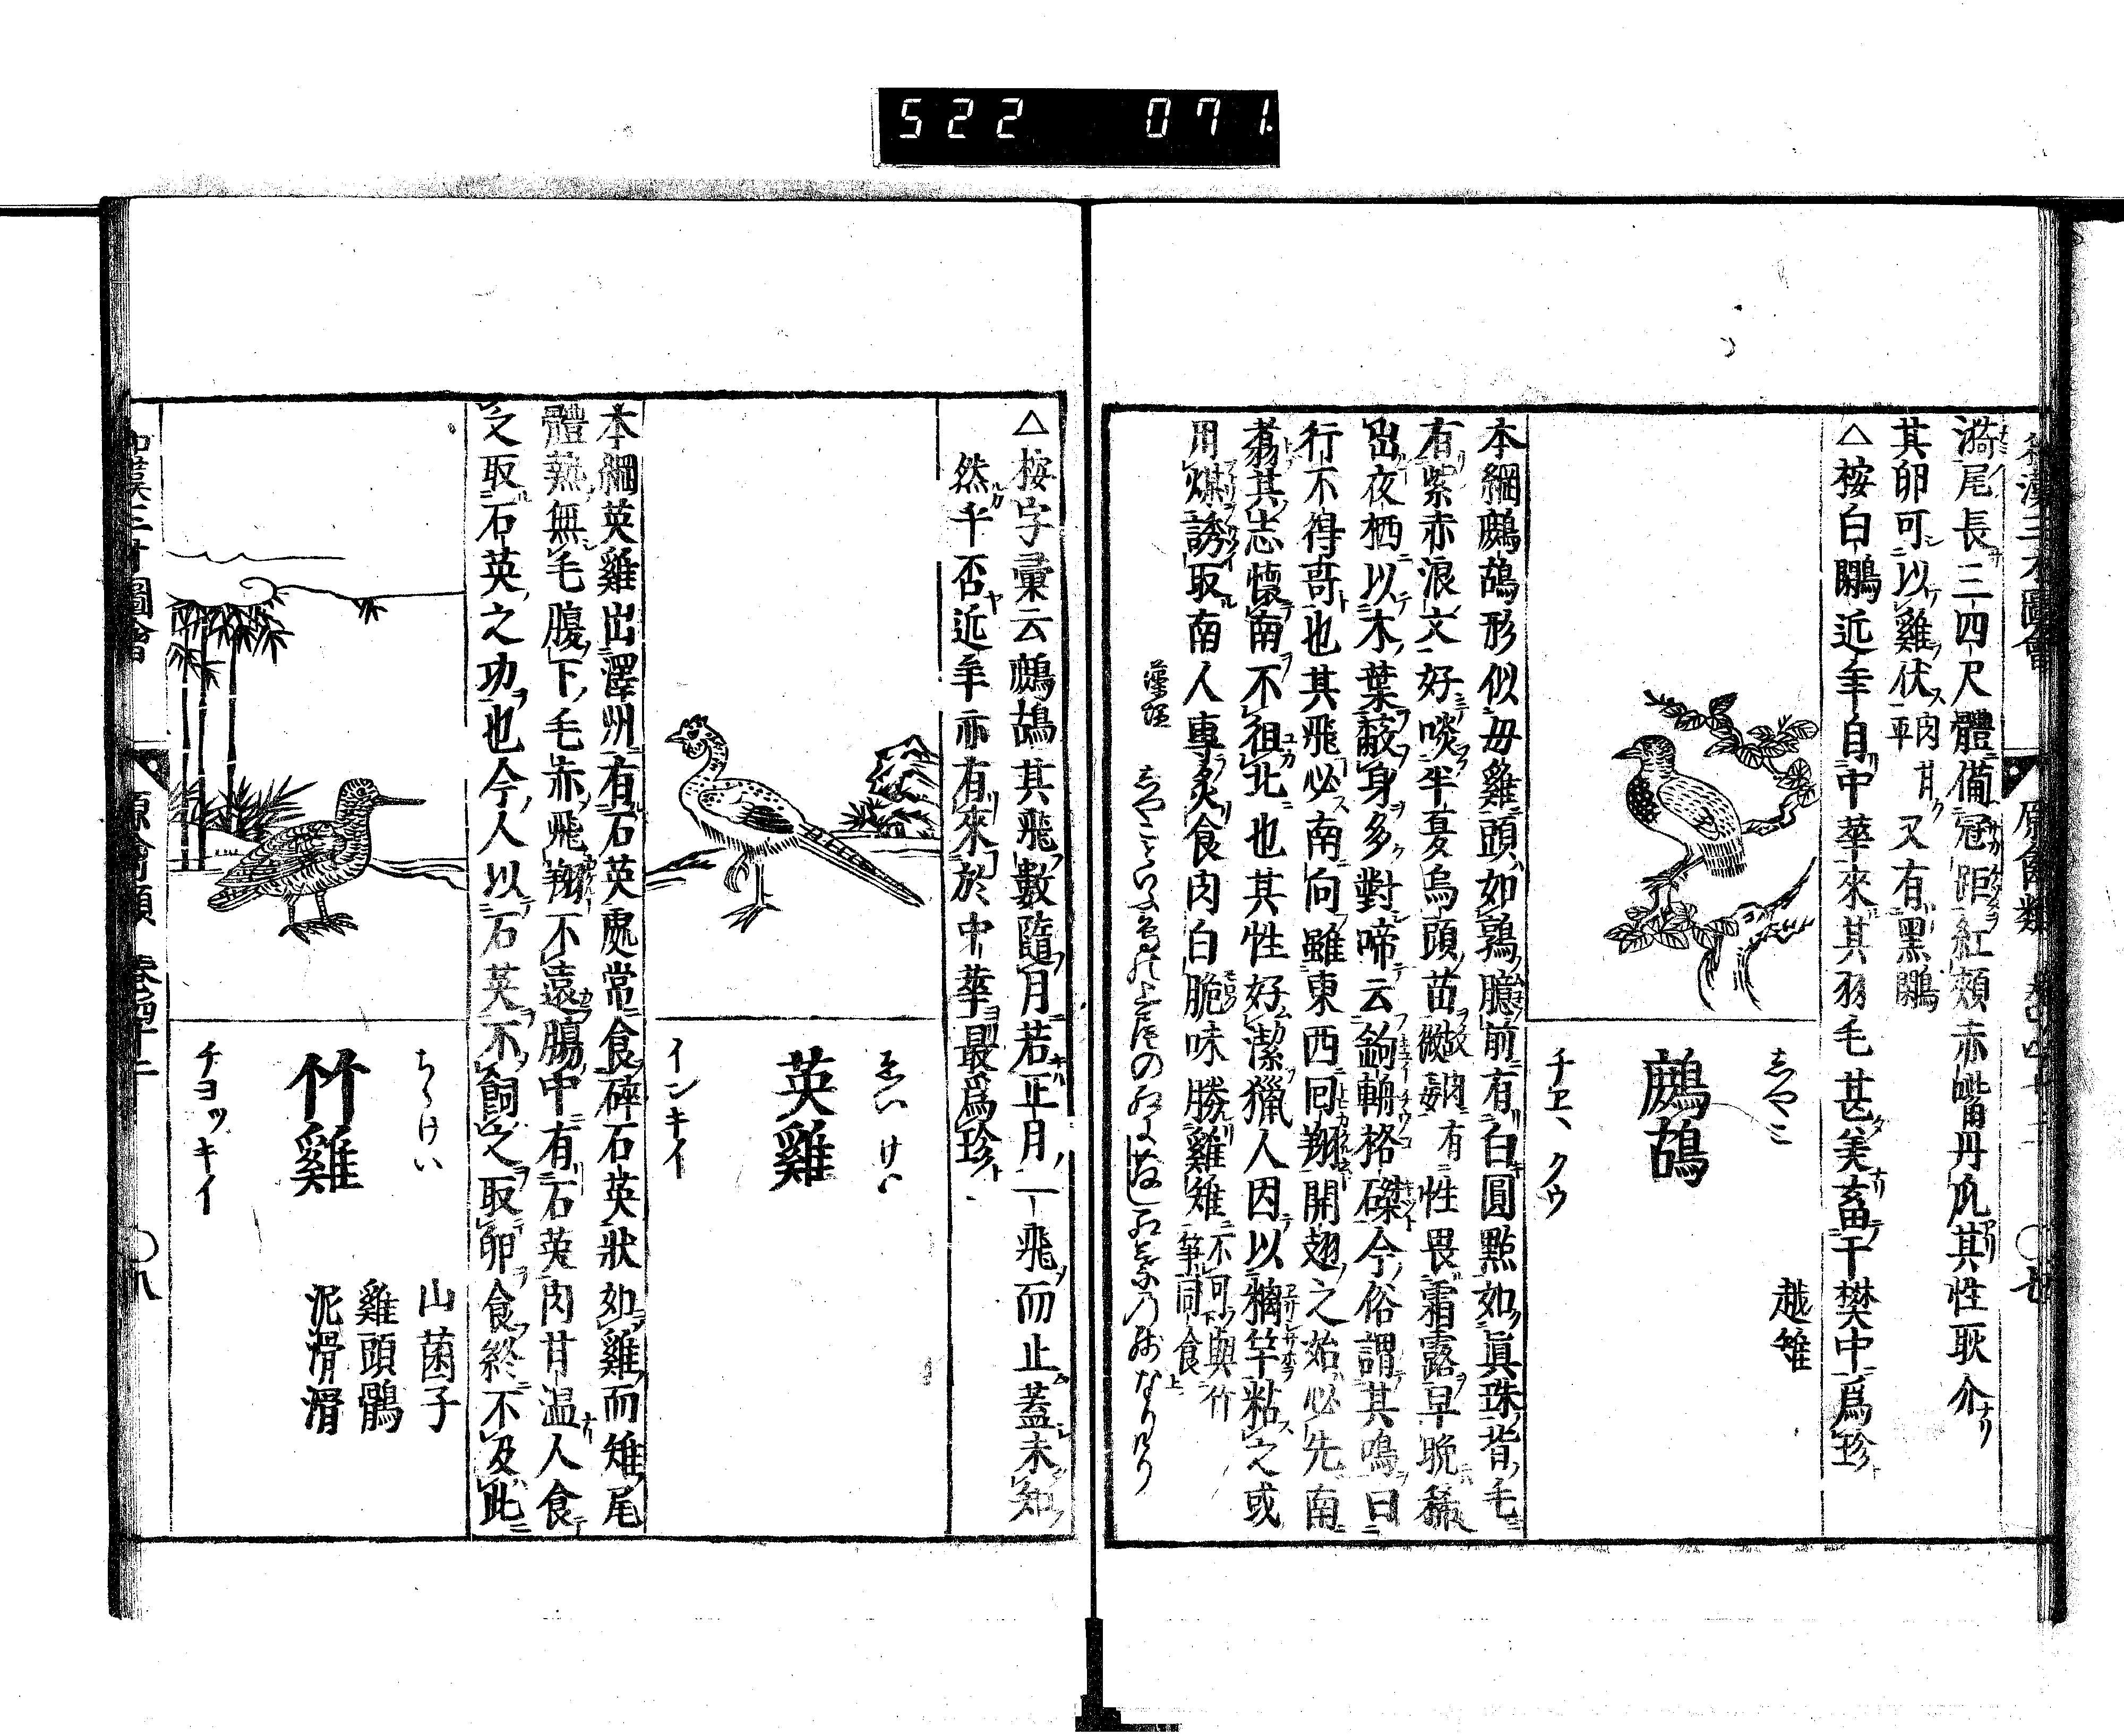 522 071
和漢三才圖會 原禽類 卷四十二 ○七
漪尾長三四尺體備冠距紅頰赤嘴丹爪其性耿介
其卵可以雞伏 肉甘平 又有黑鷴
△按白鷴近年自中華來其羽毛甚美畜于樊中爲珍
しやこ
鷓鴣
チエ、クウ
越雉
本綱鷓鴣形似毋雞頭如鶉臆前有白圓點如眞珠背毛
有紫赤浪文好啖半夏烏頭苗 故肉有微毒 性畏霜露早晩稀
出夜栖以木葉蔽身多對啼云鉤輈格磔今俗謂其鳴曰
行不得哥也其飛必南向雖東西回翔開翅之始必先南
翥其志懷南不徂北也其性好潔獵人因以黐竿粘之或
用媒誘取南人專炙食肉白脆味勝雞雉 不可與竹笋同食
△按字彙云鷓鴣其飛數隨月若正月一飛而止蓋未知
然乎否近年亦有來於中華最爲珍
ゑいけい
英雞
インキイ
本綱英雞出澤州有石英處常食碎石英狀如雞而雉尾
體熱無毛腹下毛赤飛翔不遠腸中有石英肉甘温人食
之取石英之功也今人以石英末飼之取卵食終不及此
ちくけい
竹雞
チヨッキイ
山菌子
雞頭鶻
泥滑滑
和漢三才圖會 原禽類 卷四十二 ○八